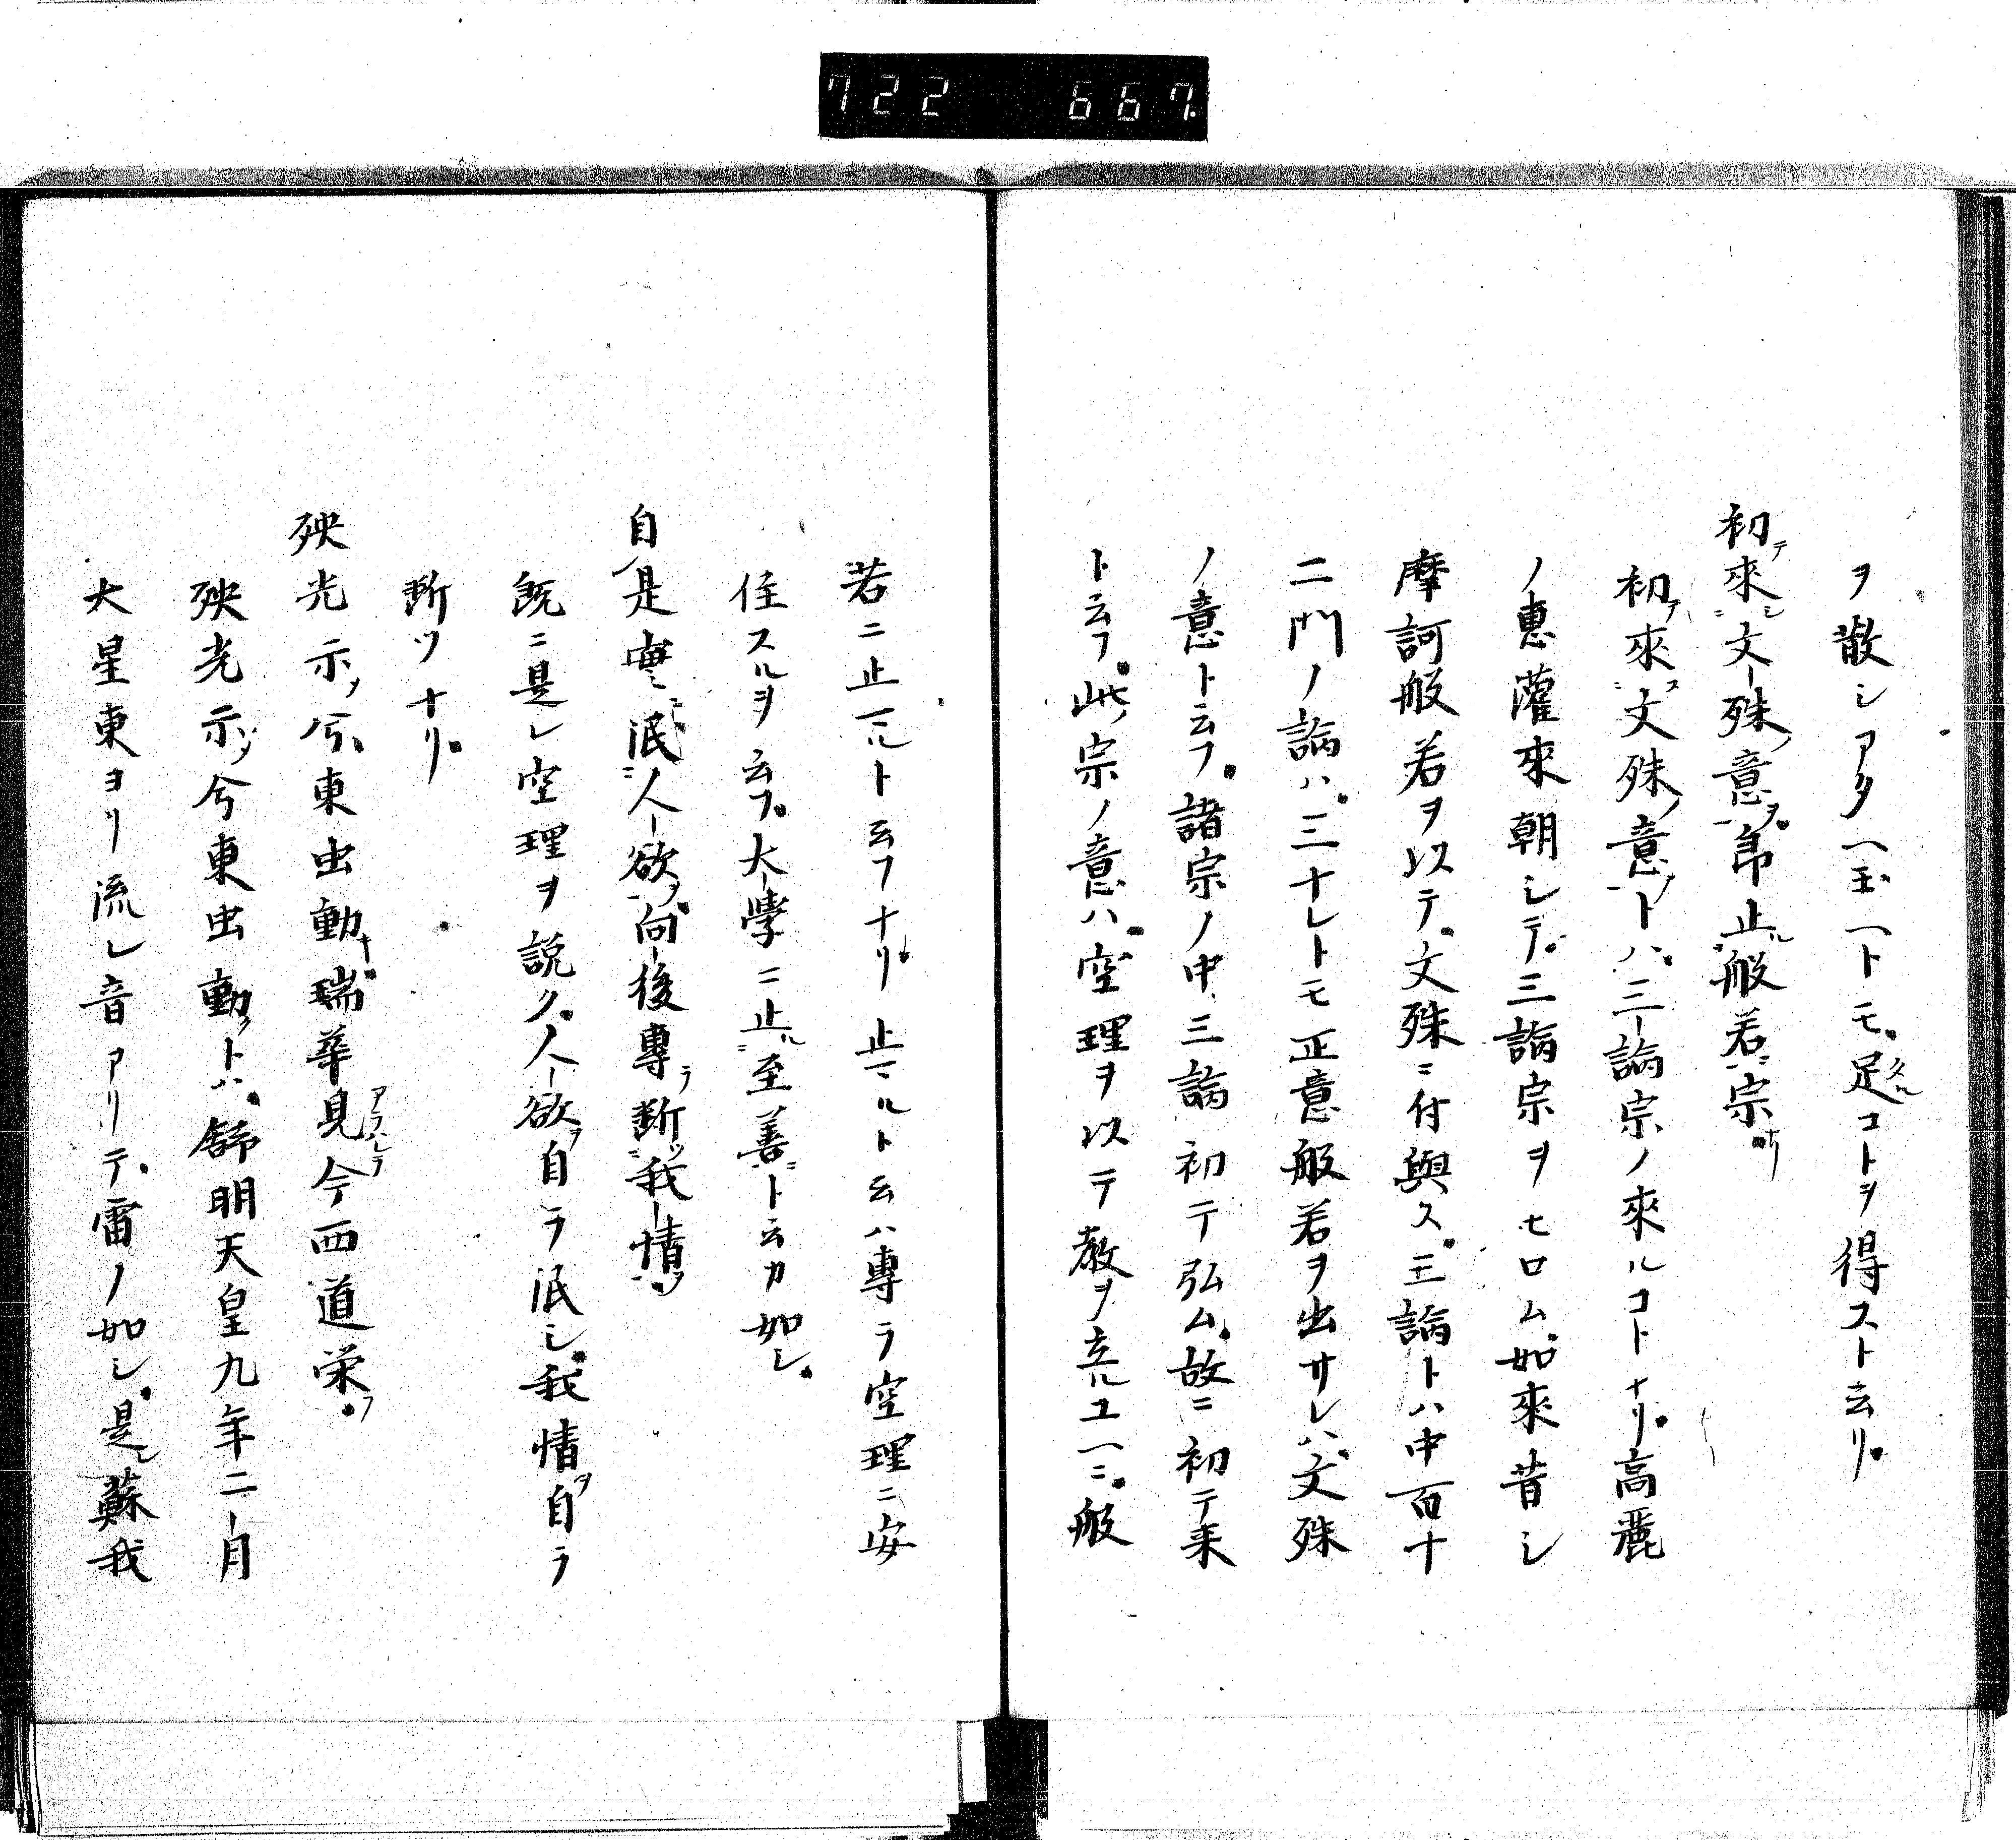 722 667
ヲ散シアタヘ玉ヘトモ足ルコトヲ得スト云リ
初テ來シ文殊ノ意ヲ帛止ル般若ニ宗ナリ
初テ來ス文殊ノ意トハ三論宗ノ來ルコトナリ高麗
ノ惠灌來朝シテ三論宗ヲヒロム如來昔シ
摩訶般若ヲ以テ文殊ニ付與ス三論トハ中百十
二門ノ論ハ三ナレトモ正意般若ヲ出サレハ文殊
ノ意ト云フ諸宗ノ中三論初テ弘ム故ニ初テ来
ト云フ此ノ宗ノ意ハ空理ヲ以テ教ヲ立ルユヘニ般
若ニ止ルト云フナリ止マルト云ハ專ラ空理ニ安
住スルヲ云フ大學ニ止ル至善ニト云カ如シ
自是寞泯人欲ヲ向後專ラ斷ツ我情ヲ
既ニ是レ空理ヲ説ク人欲ヲ自ラ泯シ我情ヲ自ラ
斷ツナリ
殃光示ノ兮東出動キ瑞華見アラハレテ今西道栄フ
殃光示ソノ兮東出動クトハ舒明天皇九年二月
大星東ヨリ流レ音アリテ雷ノ如シ是レ蘇我